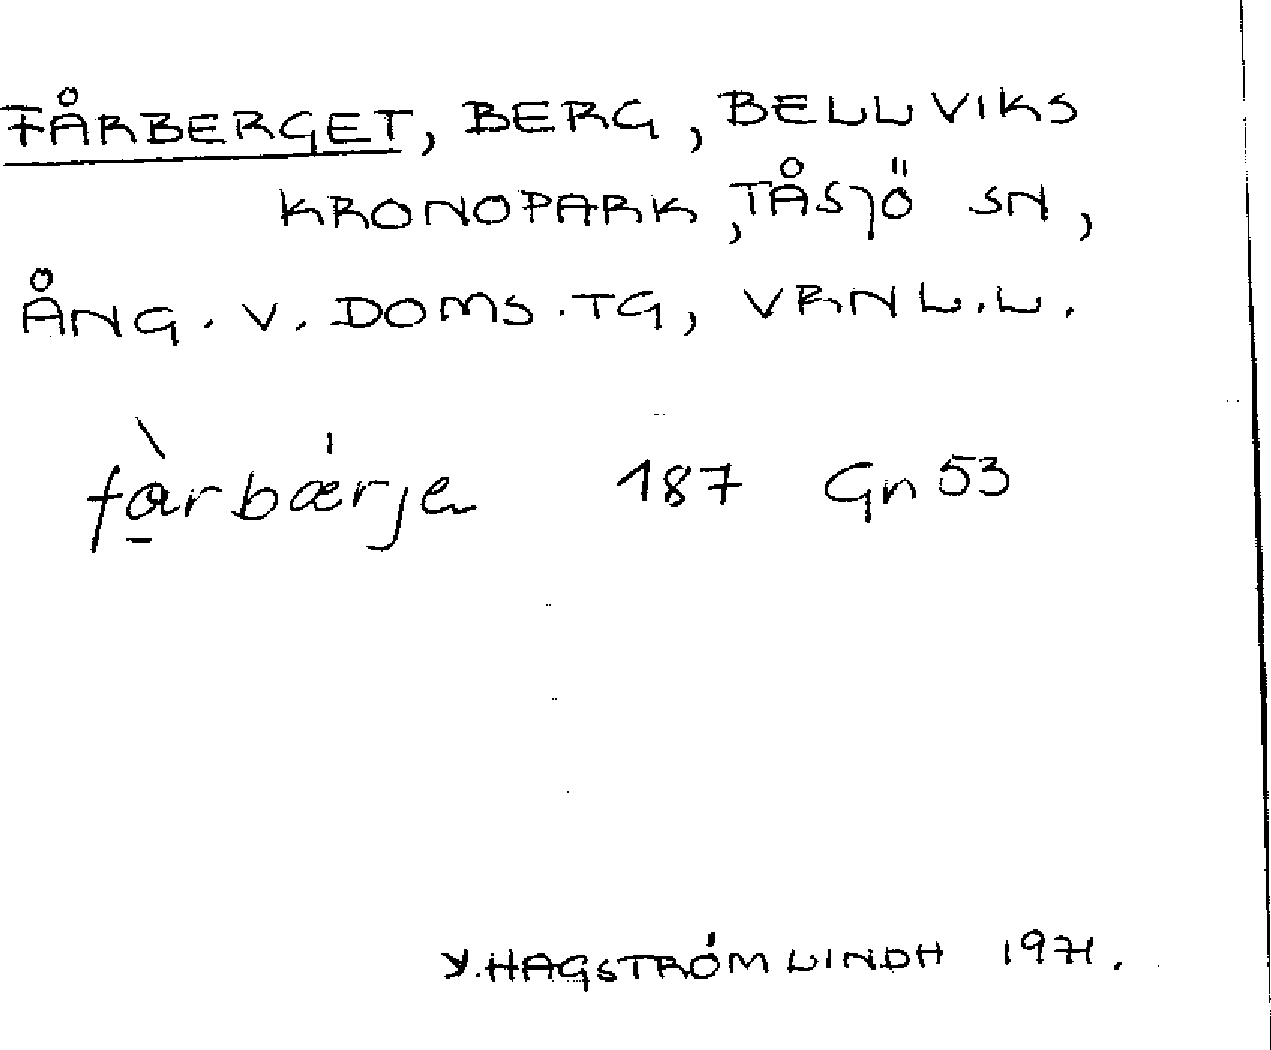 FÅRBERGET, BERG, BELLVIKS
KRONOPARK, TÅSJÖ SN,
ÅNG. V. DOMS.TG, VRNL.L.
fàrbǽrje 187 Gn 53
Y. HAGSTRÖM LINDH 1971.